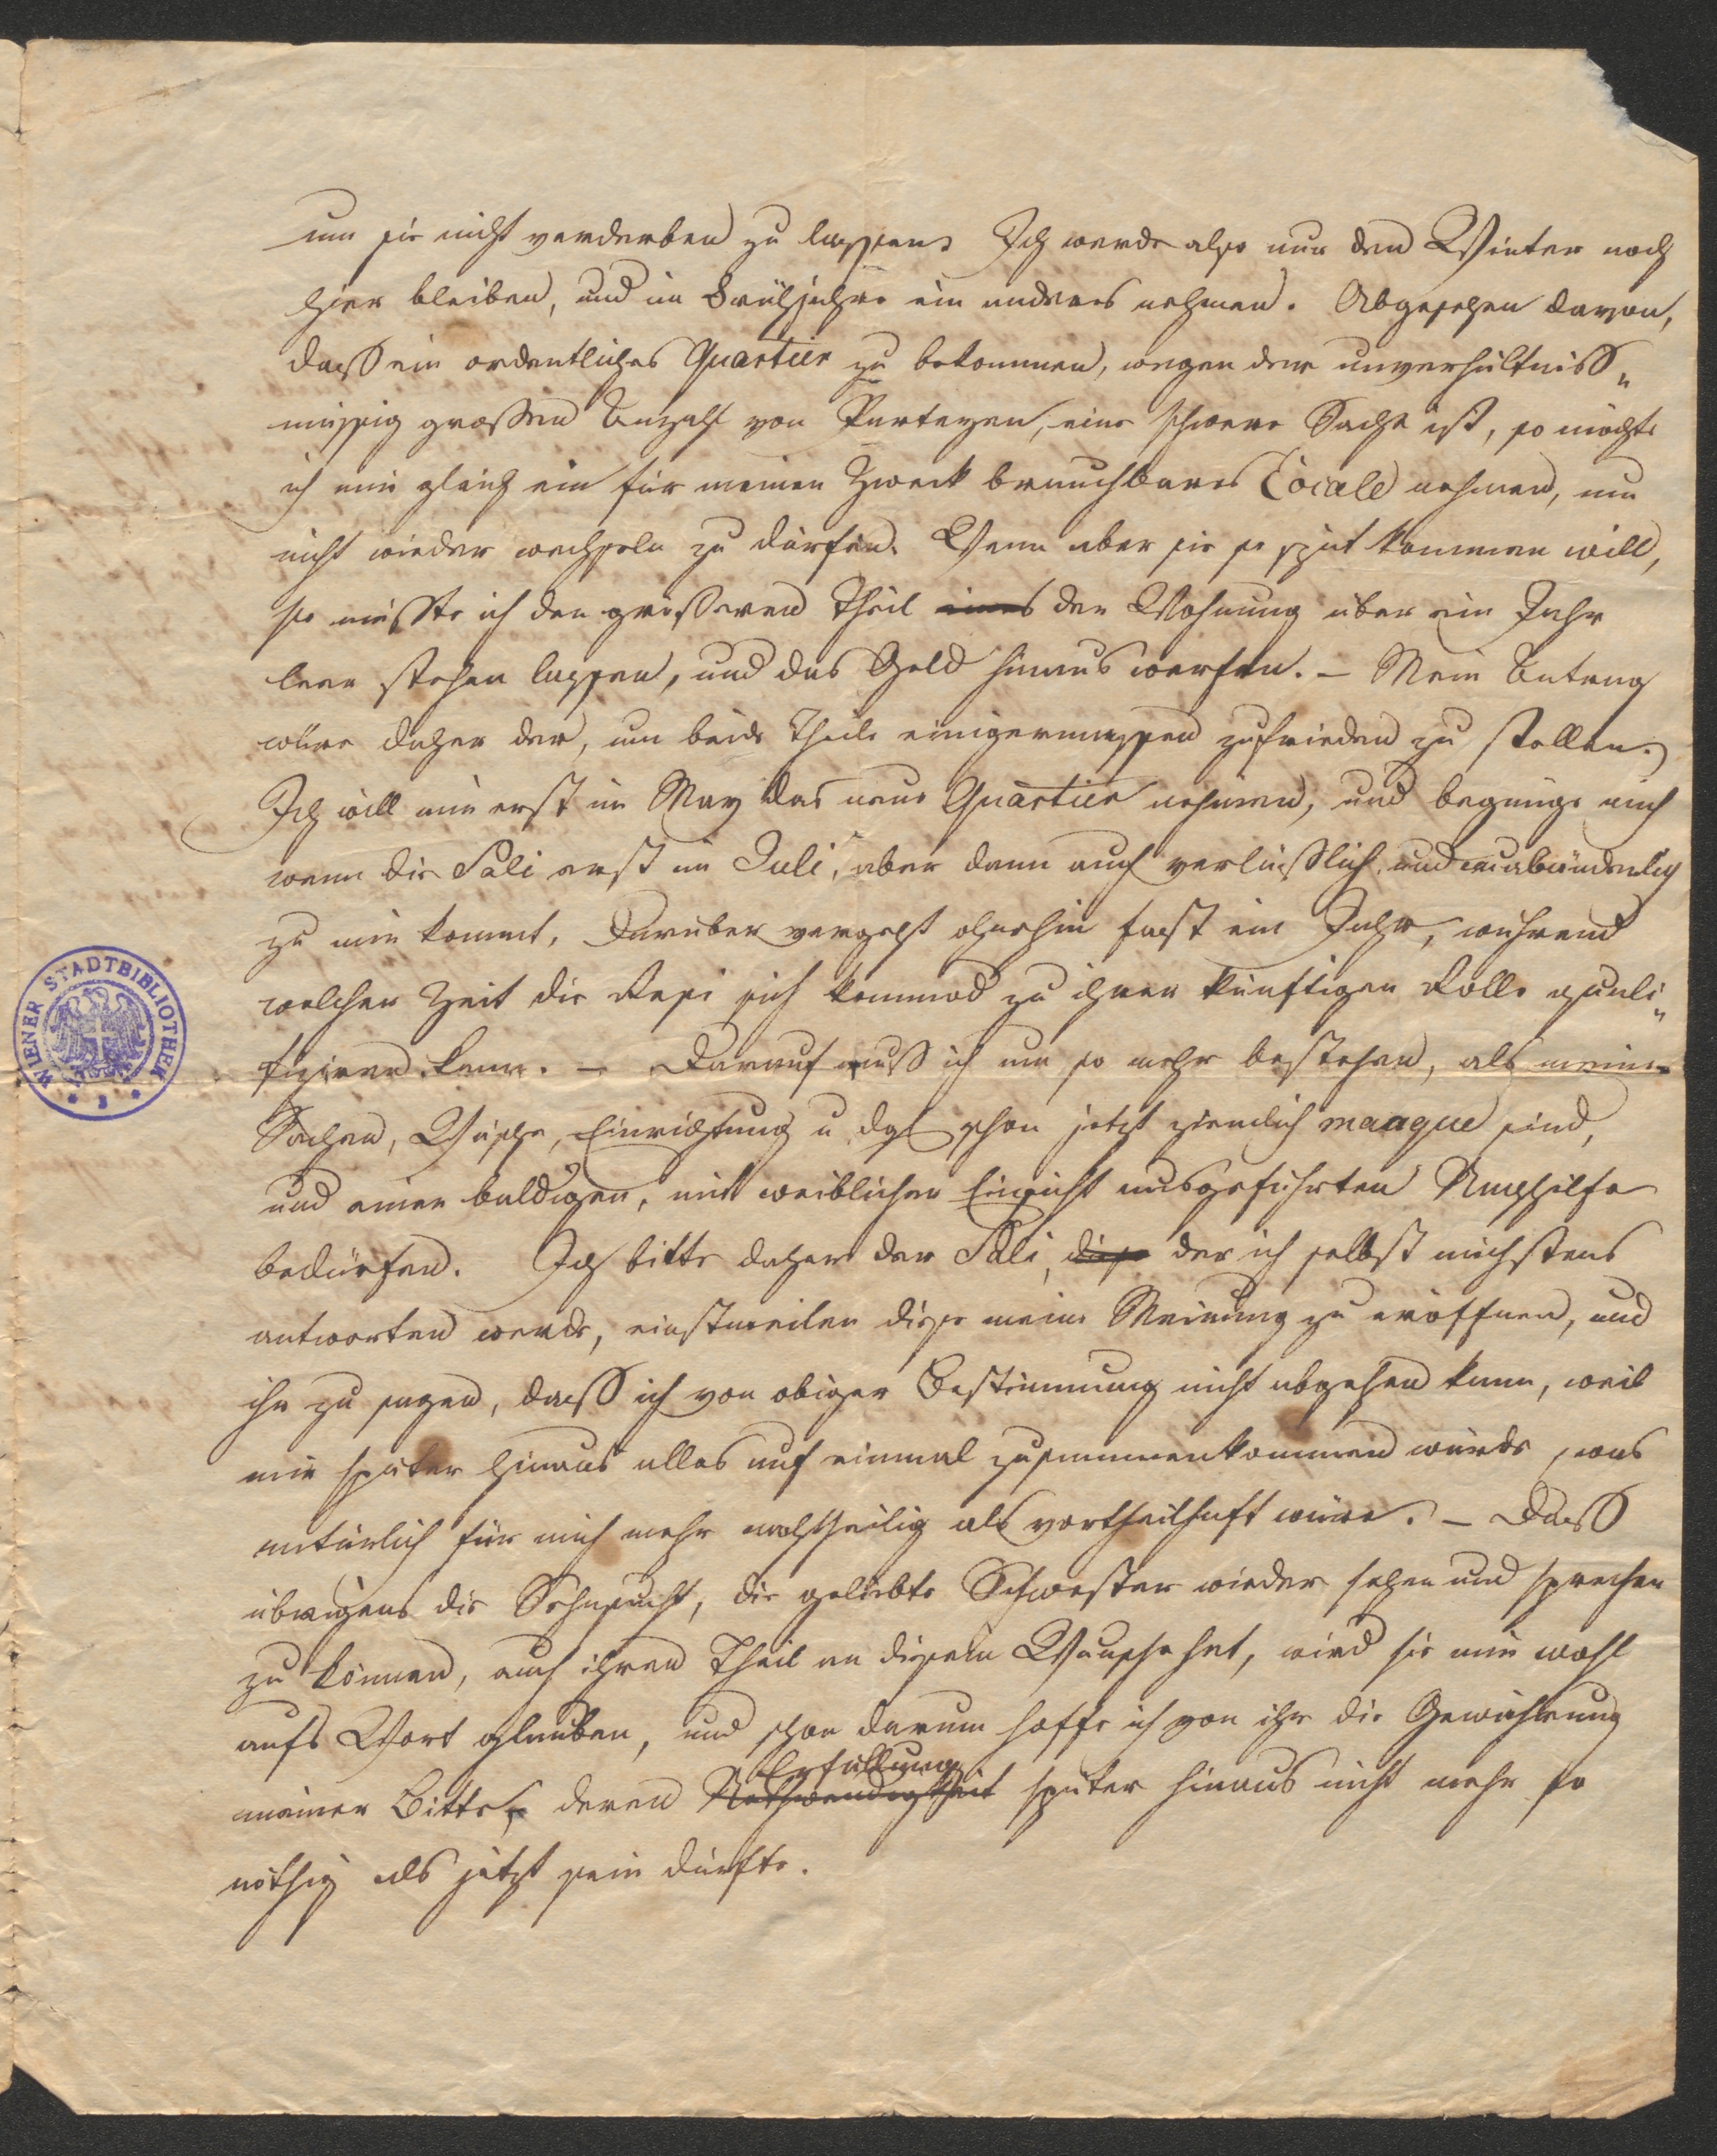 um sie nicht verderben zu lassen. Ich werde also nur den Winter noch
hier bleiben, und im Frühjahre ein anderes nehmen. Abgesehen davon,
daß ein ordentliches Quartier zu bekommen, wegen der unverhältniß„
mässig großen Anzahl von Parteyen, eine schwere Sache ist, so möchte
ich mir gleich ein für meinen Zweck brauchbares Locale nehmen, um
nicht wieder wechseln zu dürfen. Wenn aber sie so spät kommen will,
so müßte ich den größeren Theil eines der Wohnung über ein Jahr
leer stehen lassen, und das Geld hinaus werfen. – Mein Antrag
wäre daher der, um beide Theile einigermassen zufrieden zu stellen.
Ich will mir erst im May das neue Quartier nehmen, und begnüge mich
wenn die Sali erst im Juli, aber dann auch verläßlich und unabänderlich
zu mir kommt. Darüber vergeht ohnehin fast ein Jahr, während
welcher Zeit die Resi sich kommod zu ihrer künftigen Rolle quali„
fiziren kann. – Darauf muß ich um so mehr bestehen, als meine
Sachen, Wäsche, Einrichtung u dgl schon jetzt ziemlich manque sind,
und einer baldigen, mit weiblicher Einsicht ausgeführten Nachhilfe
bedürfen. Ich bitte daher der Sali, diese der ich selbst nächstens
antworten werde, einstweilen diese meine Meinung zu eröffnen, und
ihr zu sagen, daß ich von obiger Bestimmung nicht abgehen kann, weil
mir später hinaus alles auf einmal zusammenkommen würde, was
natürlich für mich mehr nachtheilig als vortheilhaft wäre. – Daß
übrigens die Sehnsucht, die geliebte Schwester wieder sehen und sprechen
zu können, auch ihren Theil an diesem Wunsche hat, wird sie mir wohl
aufs Wort glauben, und schon darum hoffe ich von ihr die Gewährung
Erfüllung
meiner Bitte, deren Nothwendigkeit später hinaus nicht mehr so
nöthig als jetzt sein dürfte.
WIENER STADTBIBLIOTHEK